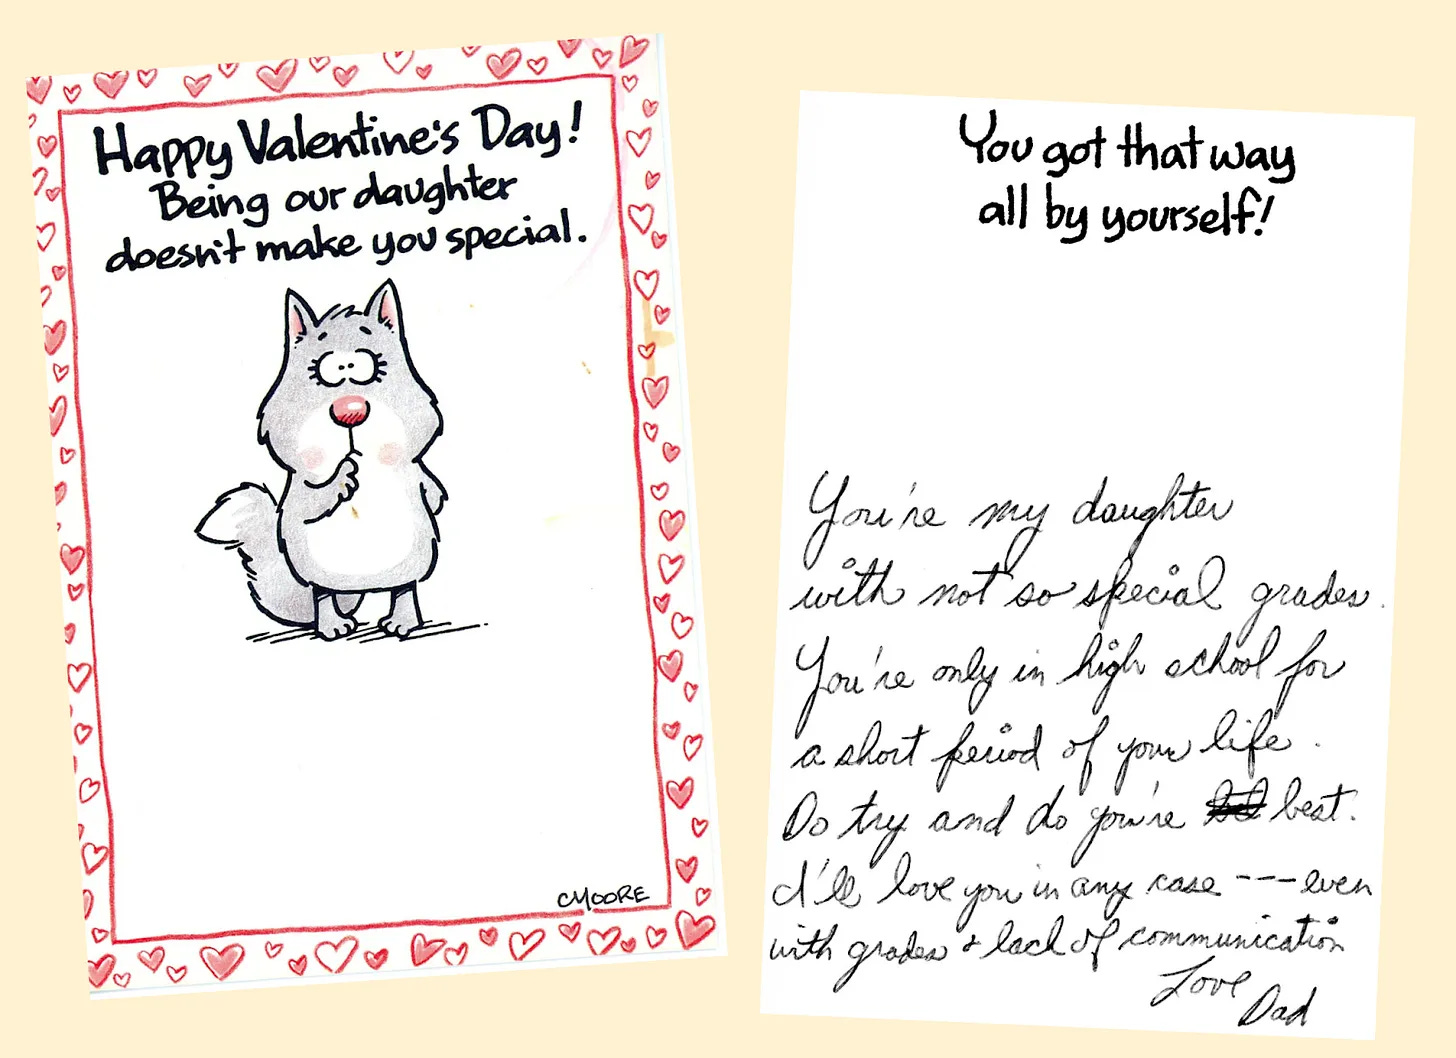 Happy Valentine's Day!
Being our daughter
doesn't make you special.
CMOORE
You got that way
all by yourself!
You're my daughter
with not so special grades.
You're only in high school for
a short period of your life.
Do try and do you're best.
I'll love you in any case --- even
with grades & lack of communication
Love
Dad